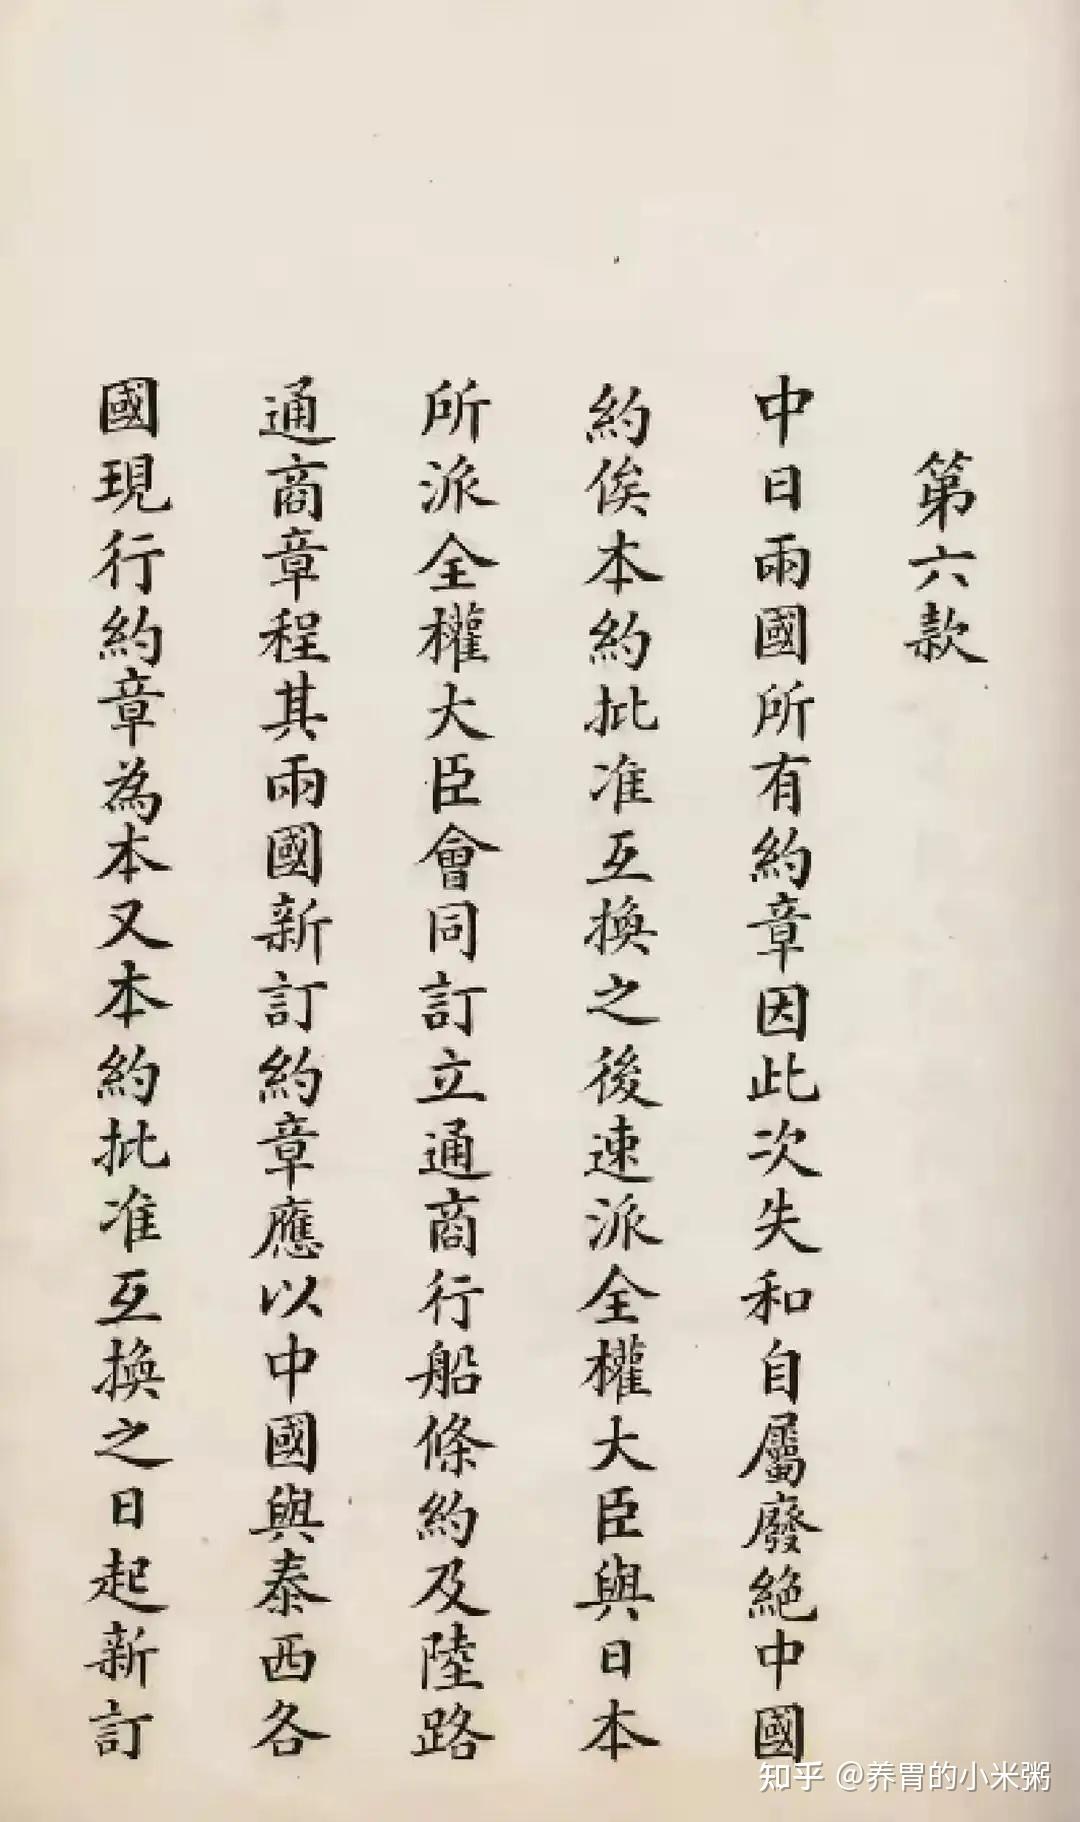 第六款
中日兩國所有約章因此次失和自屬廢絕中國
約俟本約批准互換之後速派全權大臣與日本
所派全權大臣會同訂立通商行船條約及陸路
通商章程其兩國新訂約章應以中國與泰西各
國現行約章為本又本約批准互換之日起新訂
知乎 @养胃的小米粥